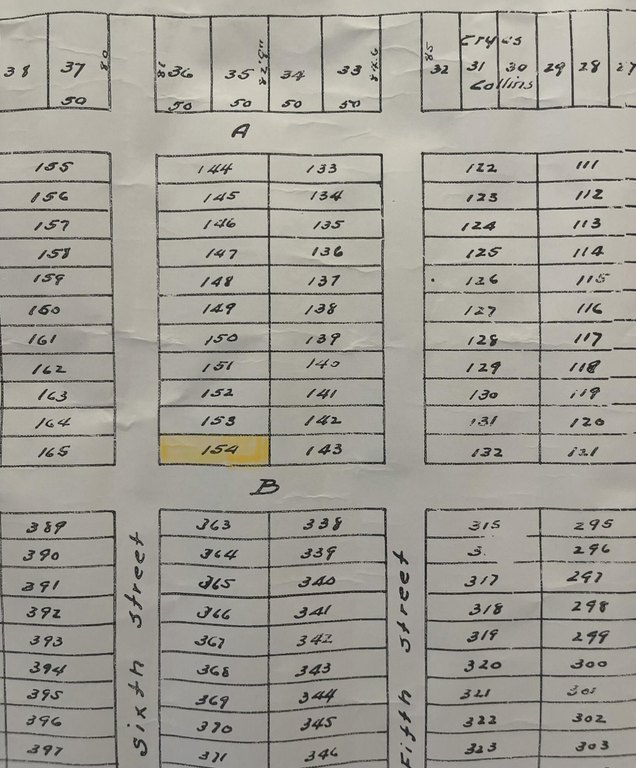 80 81 82'9" 84.6 85 Cry's
38 37 36 35 34 33 32 31 30 29 28 27
Collins
50 50 50 50 50
A
155 144 133 122 111
156 145 134 123 112
157 146 135 124 113
158 147 136 125 114
159 148 137 126 115
160 149 138 127 116
161 150 139 128 117
162 151 140 129 118
163 152 141 130 119
164 153 142 131 120
165 154 143 132 121
B
389 363 338 315 295
390 364 339 3 296
391 365 340 317 297
392 366 341 318 298
393 367 342 319 299
394 368 343 320 300
395 369 344 321 301
396 370 345 322 302
397 371 346 323 303
Sixth Street
Fifth Street